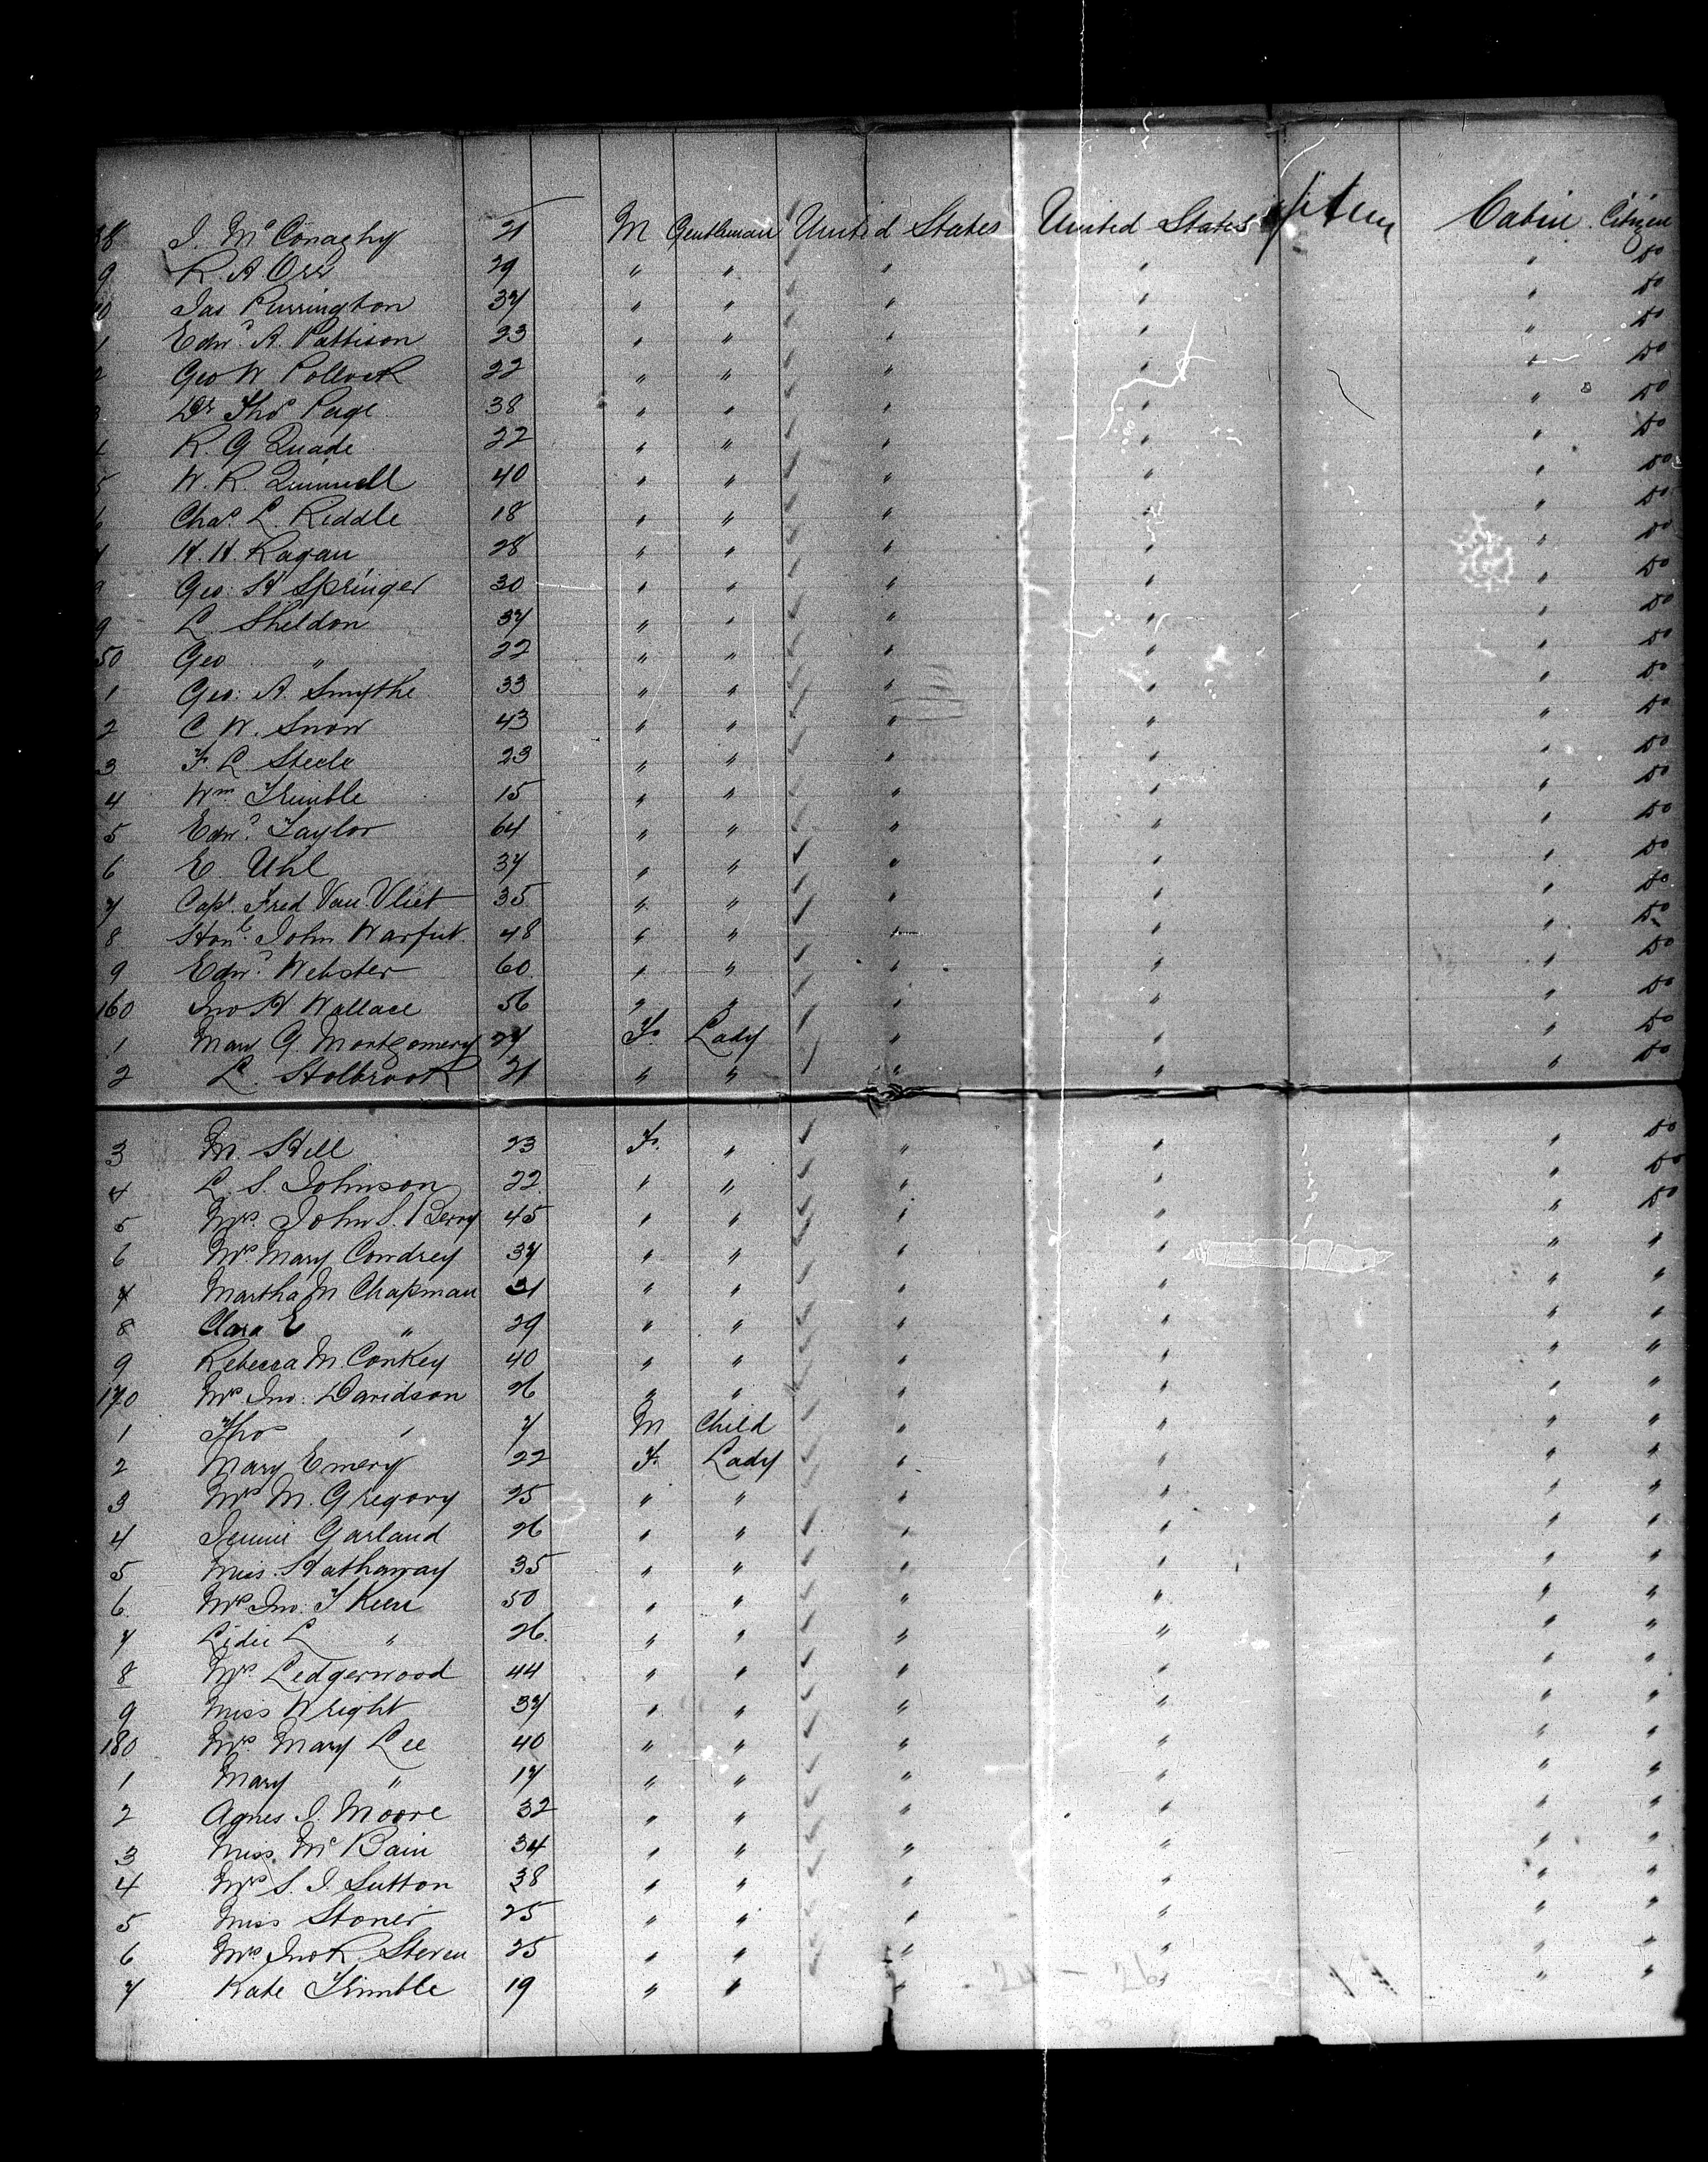 38 J. McConaghy 21 M Gentleman United States United States Cabin Citizen
9 R. A. Orr 29 " " " " " Do
40 Jas Purrington 37 " " " " " Do
1 Edwd. A. Pattison 23 " " " " " Do
2 Geo W. Pollock 22 " " " " " Do
3 Dr Thos Page 38 " " " " " Do
4 R. G Quade 22 " " " " " Do
5 W. R. 40 " " " " " Do
6 Chas. L. Riddle 18 " " " " " Do
7 H. H. Ragan 28 " " " " " Do
8 Geo: H Springer 30 " " " " " Do
9 L. Sheldon 37 " " " " " Do
50 Geo " 22 " " " " " Do
1 Geo: A. Smythe 33 " " " " " Do
2 C W. Snow 43 " " " " " Do
3 F. L. Steele 23 " " " " " Do
4 Wm. Trimble 15 " " " " " Do
5 Edwd. Taylor 64 " " " " " Do
6 E Uhl 37 " " " " " Do
7 Capt. Fred Van Vliet 35 " " " " " Do
8 Honl. John Warfut. 48 " " " " " Do
9 Edwd. Webster 60 " " " " " Do
160 Jno H Wallace 56 " " " " " Do
1 Mary G. Montgomery 27 F. Lady " " " Do
2 L. Holbrook 21 " " " " " Do
3 M. Hill 23 F. " " " " Do
4 L. S. Johnson 22 " " " " " Do
5 Mrs. John S. Berry 45 " " " " " Do
6 Mrs. Mary Cowdrey 37 " " " " " "
7 Martha M Chapman 31 " " " " " "
8 Clara E " 29 " " " " " "
9 Rebecca M. Conkey 40 " " " " " "
170 Mrs. Jno. Davidson 26 " " " " " "
1 Thos " 7 M Child " " " "
2 Mary Emery 22 F. Lady " " " "
3 Mrs M. Gregory 25 " " " " " "
4 Jennie Garland 26 " " " " " "
5 Miss. Hathaway 35 " " " " " "
6. Mrs Jno. T Keen 50 " " " " " "
7 Lidie L " 26. " " " " " "
8 Mrs. Ledgerwood 44 " " " " " "
9 Miss Wright 37 " " " " " "
180 Mrs. Mary Lee 40 " " " " " "
1 Mary " 17 " " " " " "
2 Agnes J. Moore 32 " " " " " "
3 Miss. McBain 34 " " " " " "
4 Mrs S. J. Sutton 38 " " " " " "
5 Miss Stoner 25 " " " " " "
6 Mrs. Jno R. Steven 25 " " " " " "
7 Kate Trimble 19 " " " " " "